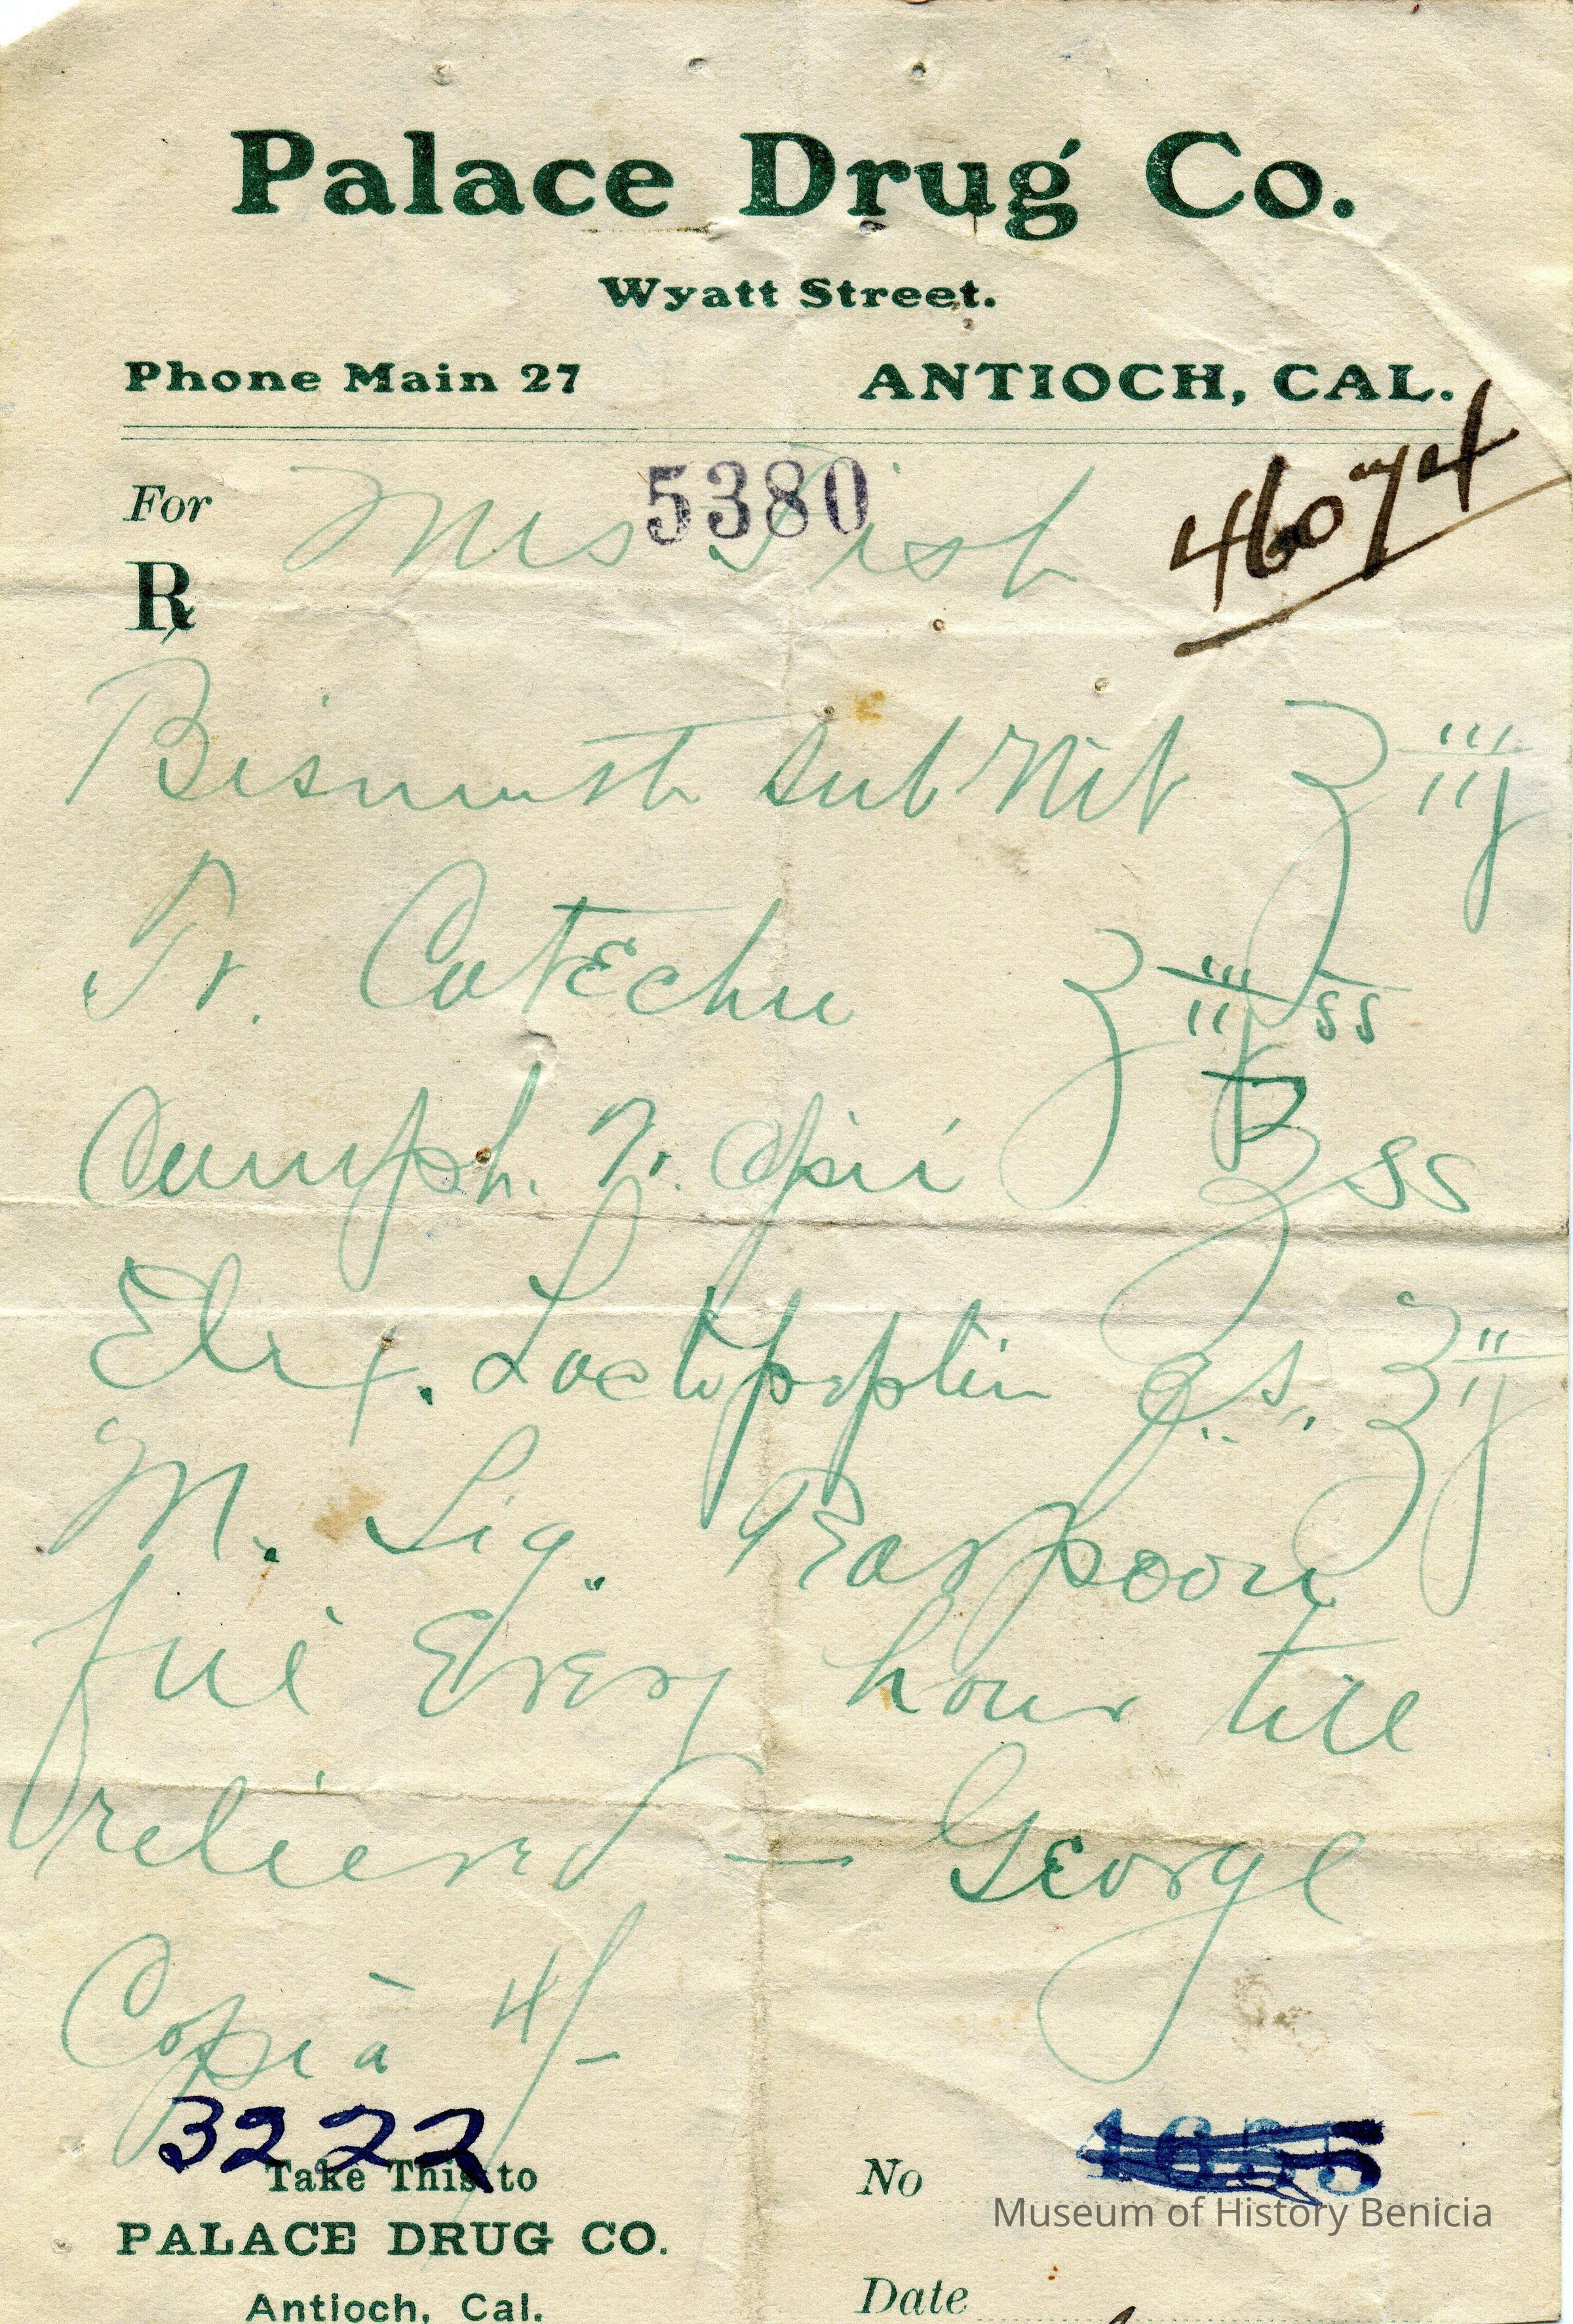 Palace Drug Co.
Wyatt Street.
Phone Main 27 ANTIOCH, CAL.
46074
For Mrs Fish 5380
℞
Bismuth Sub Nit ʒ iij
Tr. Catechu ʒ iij ss
Camph. Tr. Opii ʒ ss
Elix. Lactopeptin q.s. ʒ ij
M. Sig. Teaspoon
ful Every hour till
relieved — George
Copia 4/-
3222
Take This to
PALACE DRUG CO.
Antioch, Cal.
No 1655
Date
Museum of History Benicia